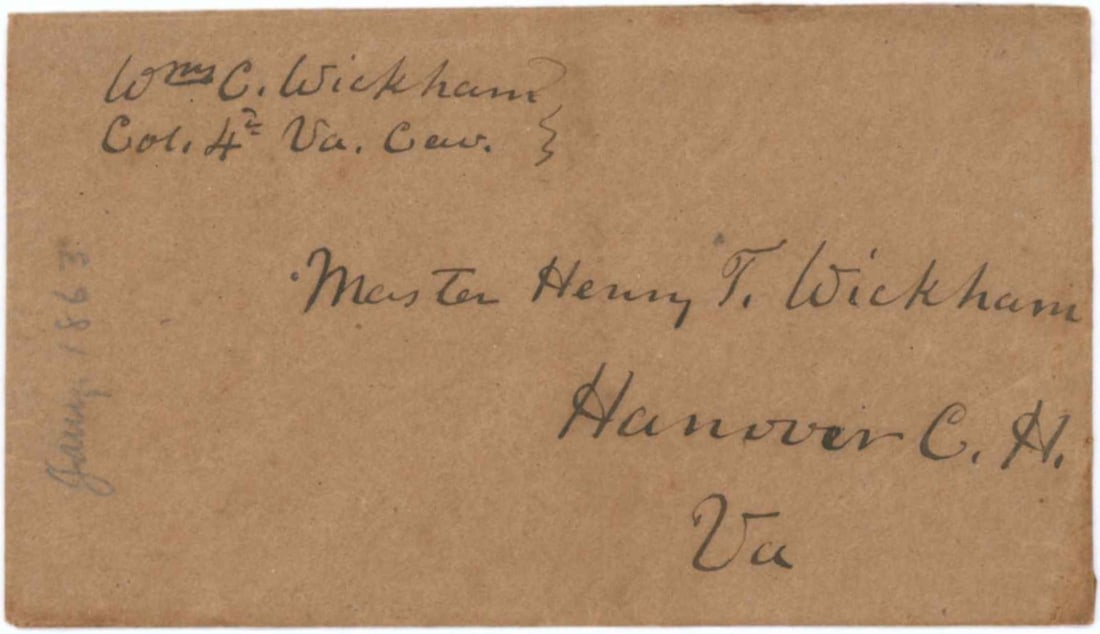 Wms C. Wickham
Col. 4th Va. Cav.
Master Henry T. Wickham
Hanover C. H.
Va
Jany 1863